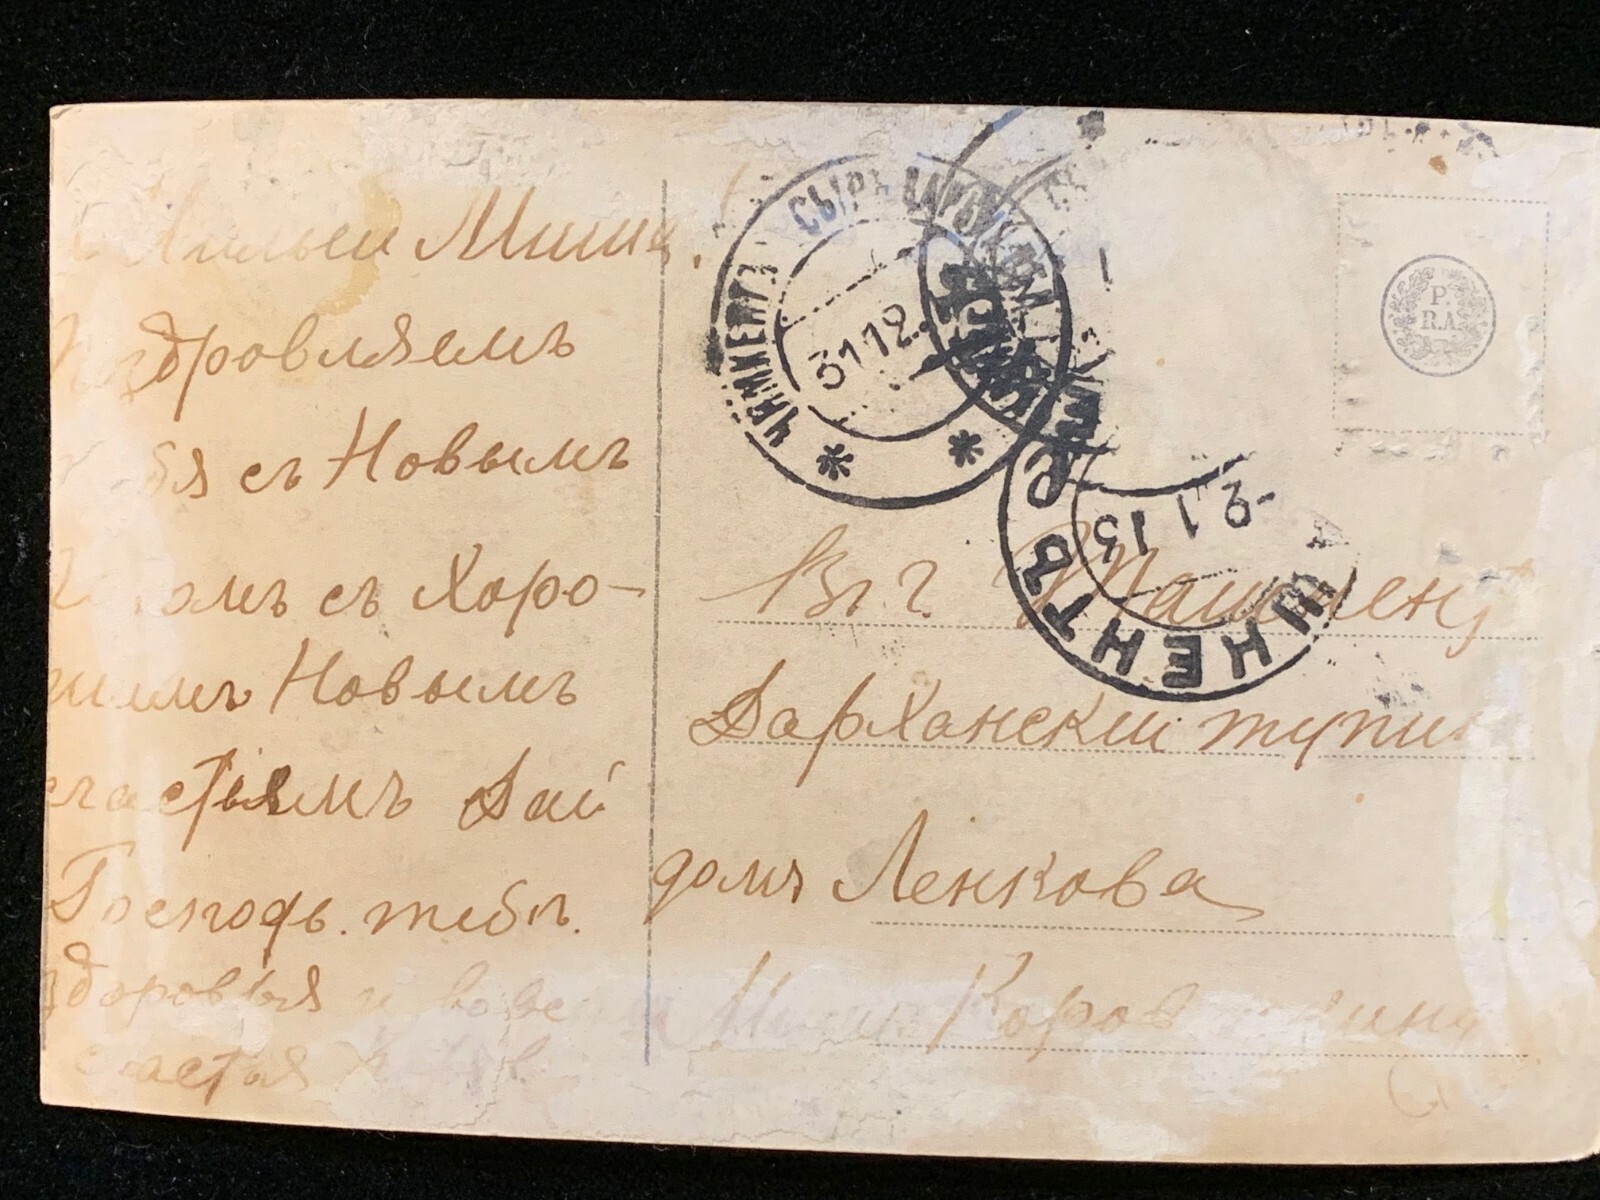 Милый Миша!
Поздровляемъ
тебя съ Новымъ
Годомъ съ Хоро-
шимъ Новымъ
счастьямъ Дай
Господь. тебъ.
здоровья и во всем
счастья
ЧИМКЕНТЪ СЫРЪ ДАРЬИН. ОБЛ.
31 12
ТАШКЕНТЪ
-2 1 13
P.
R.A.
Въ г. Ташкент
Дарханский тупик
домъ Ленкова
Коров